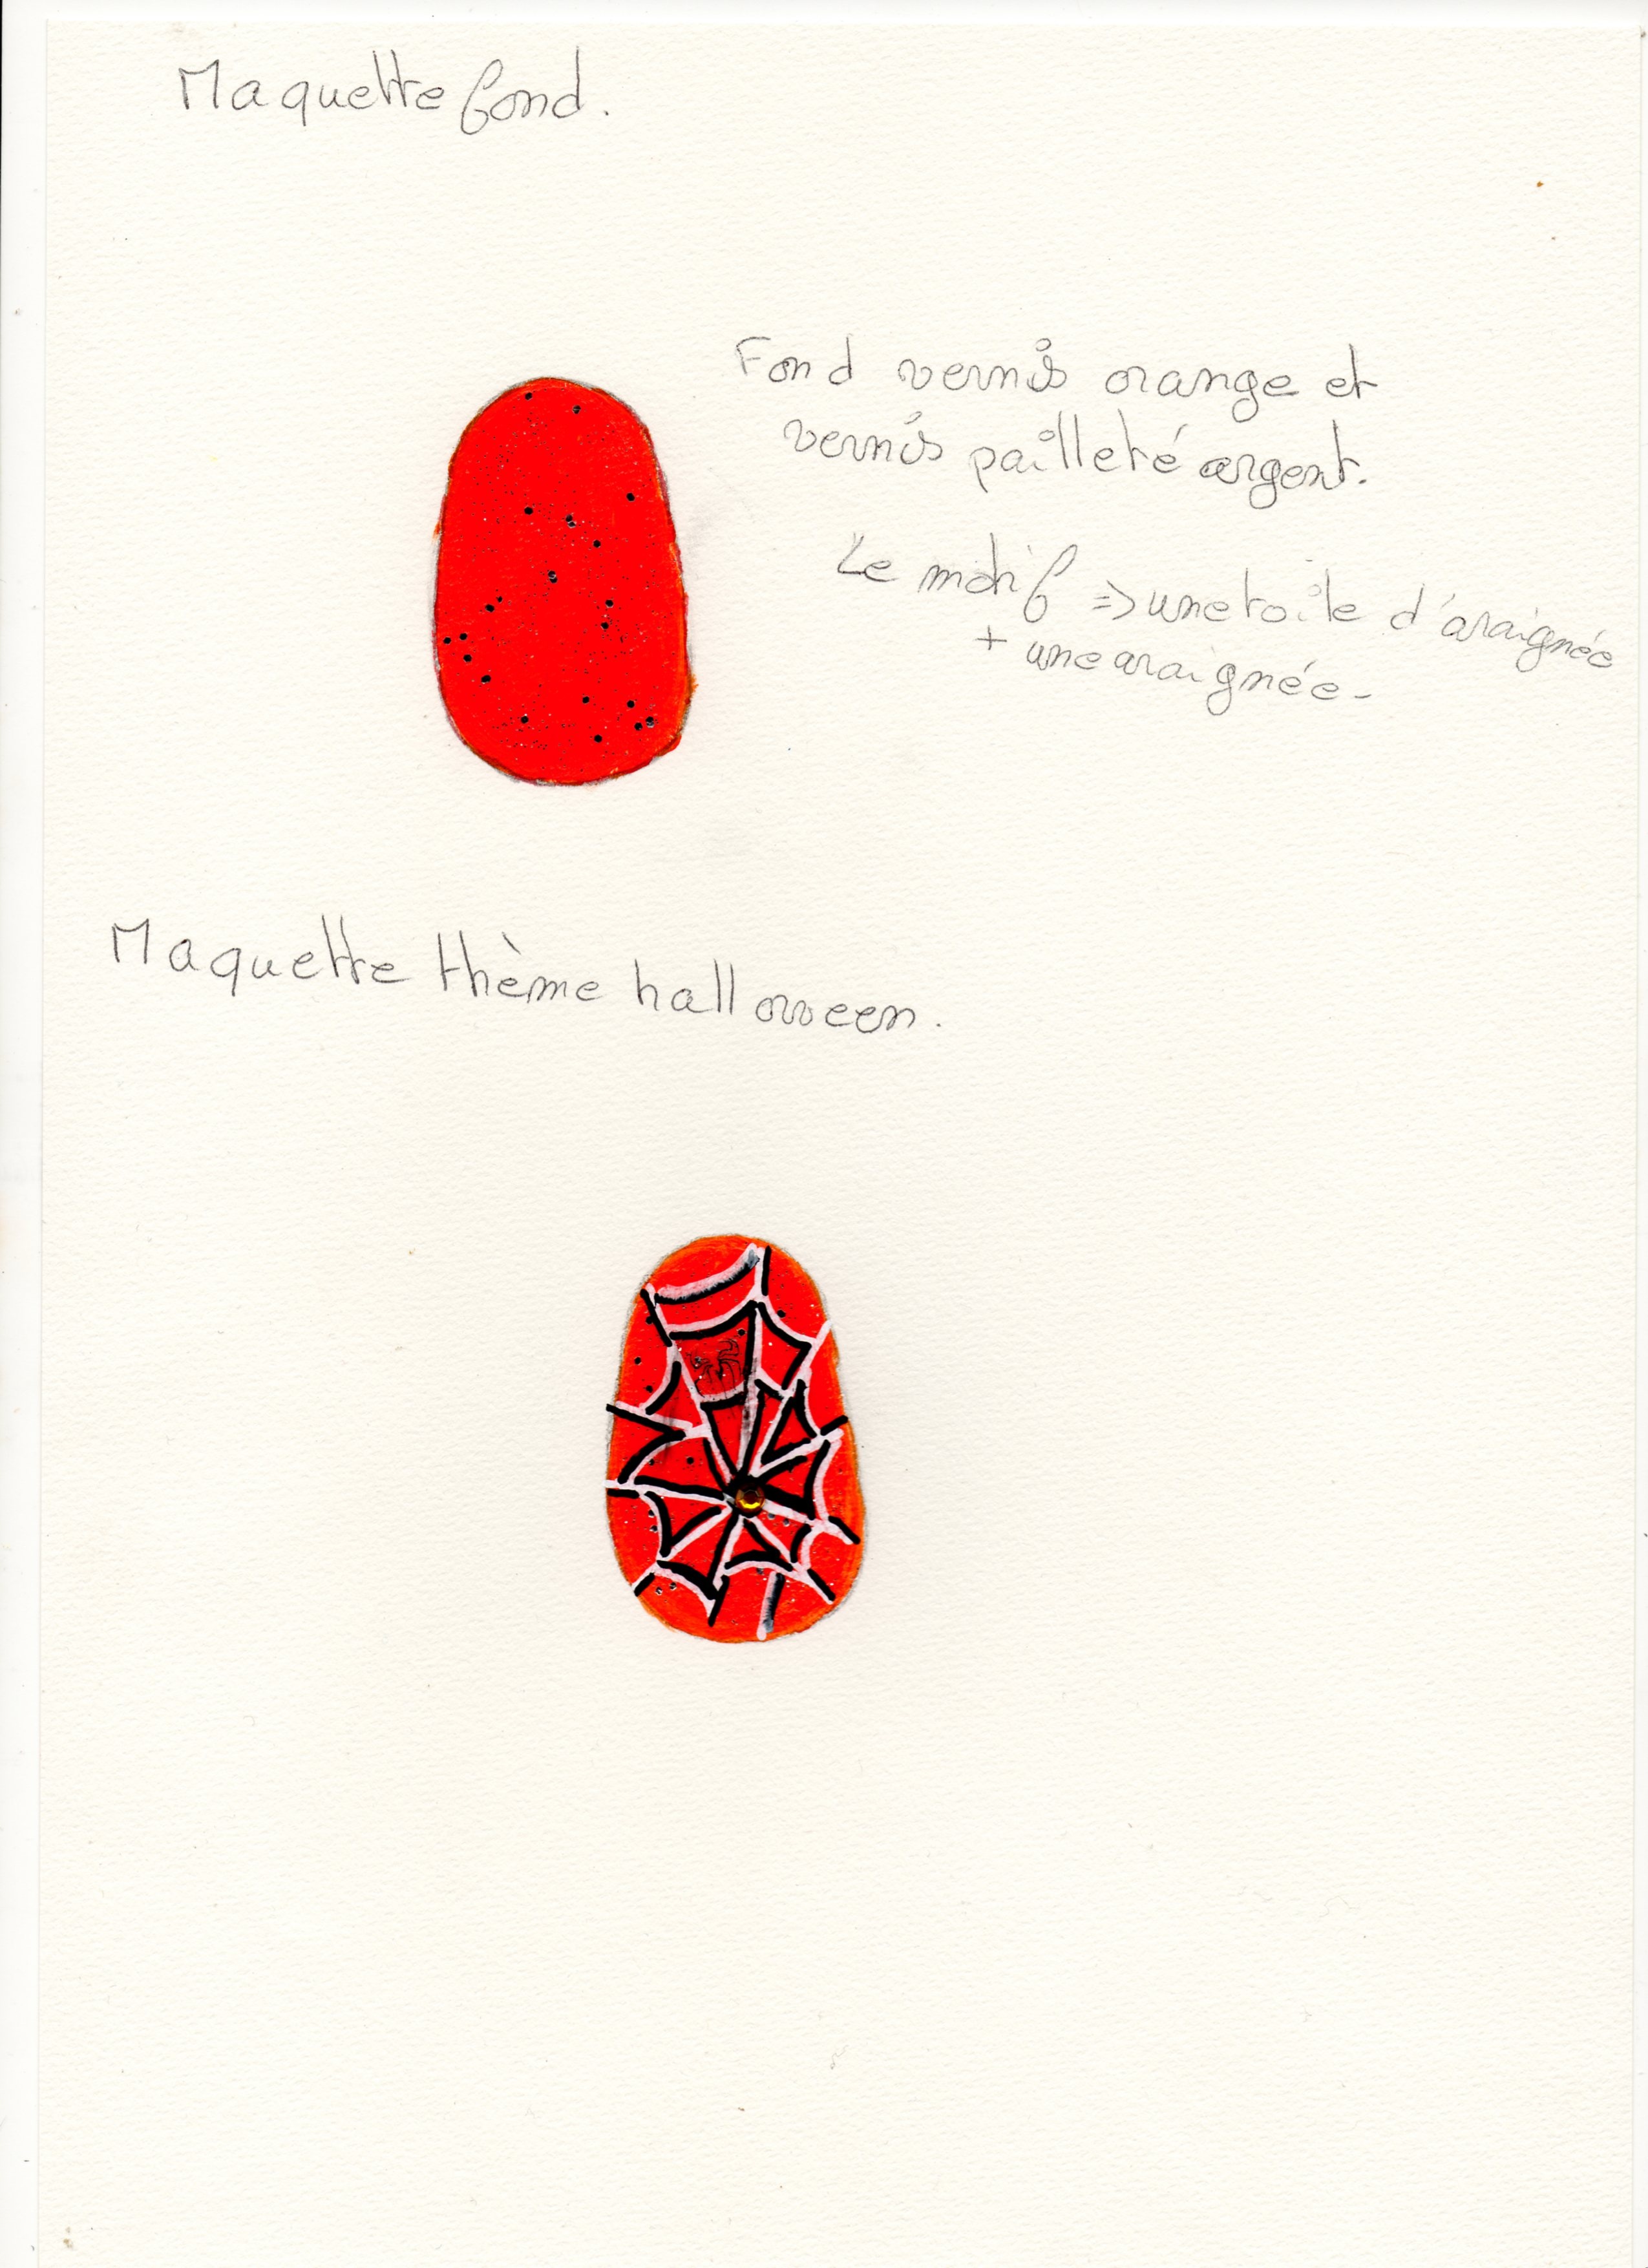 Maquette fond.
Fond vernis orange et
vernis pailleté argent.
Le motif => une toile d'araignée
+ une araignée-
Maquette thème halloween.